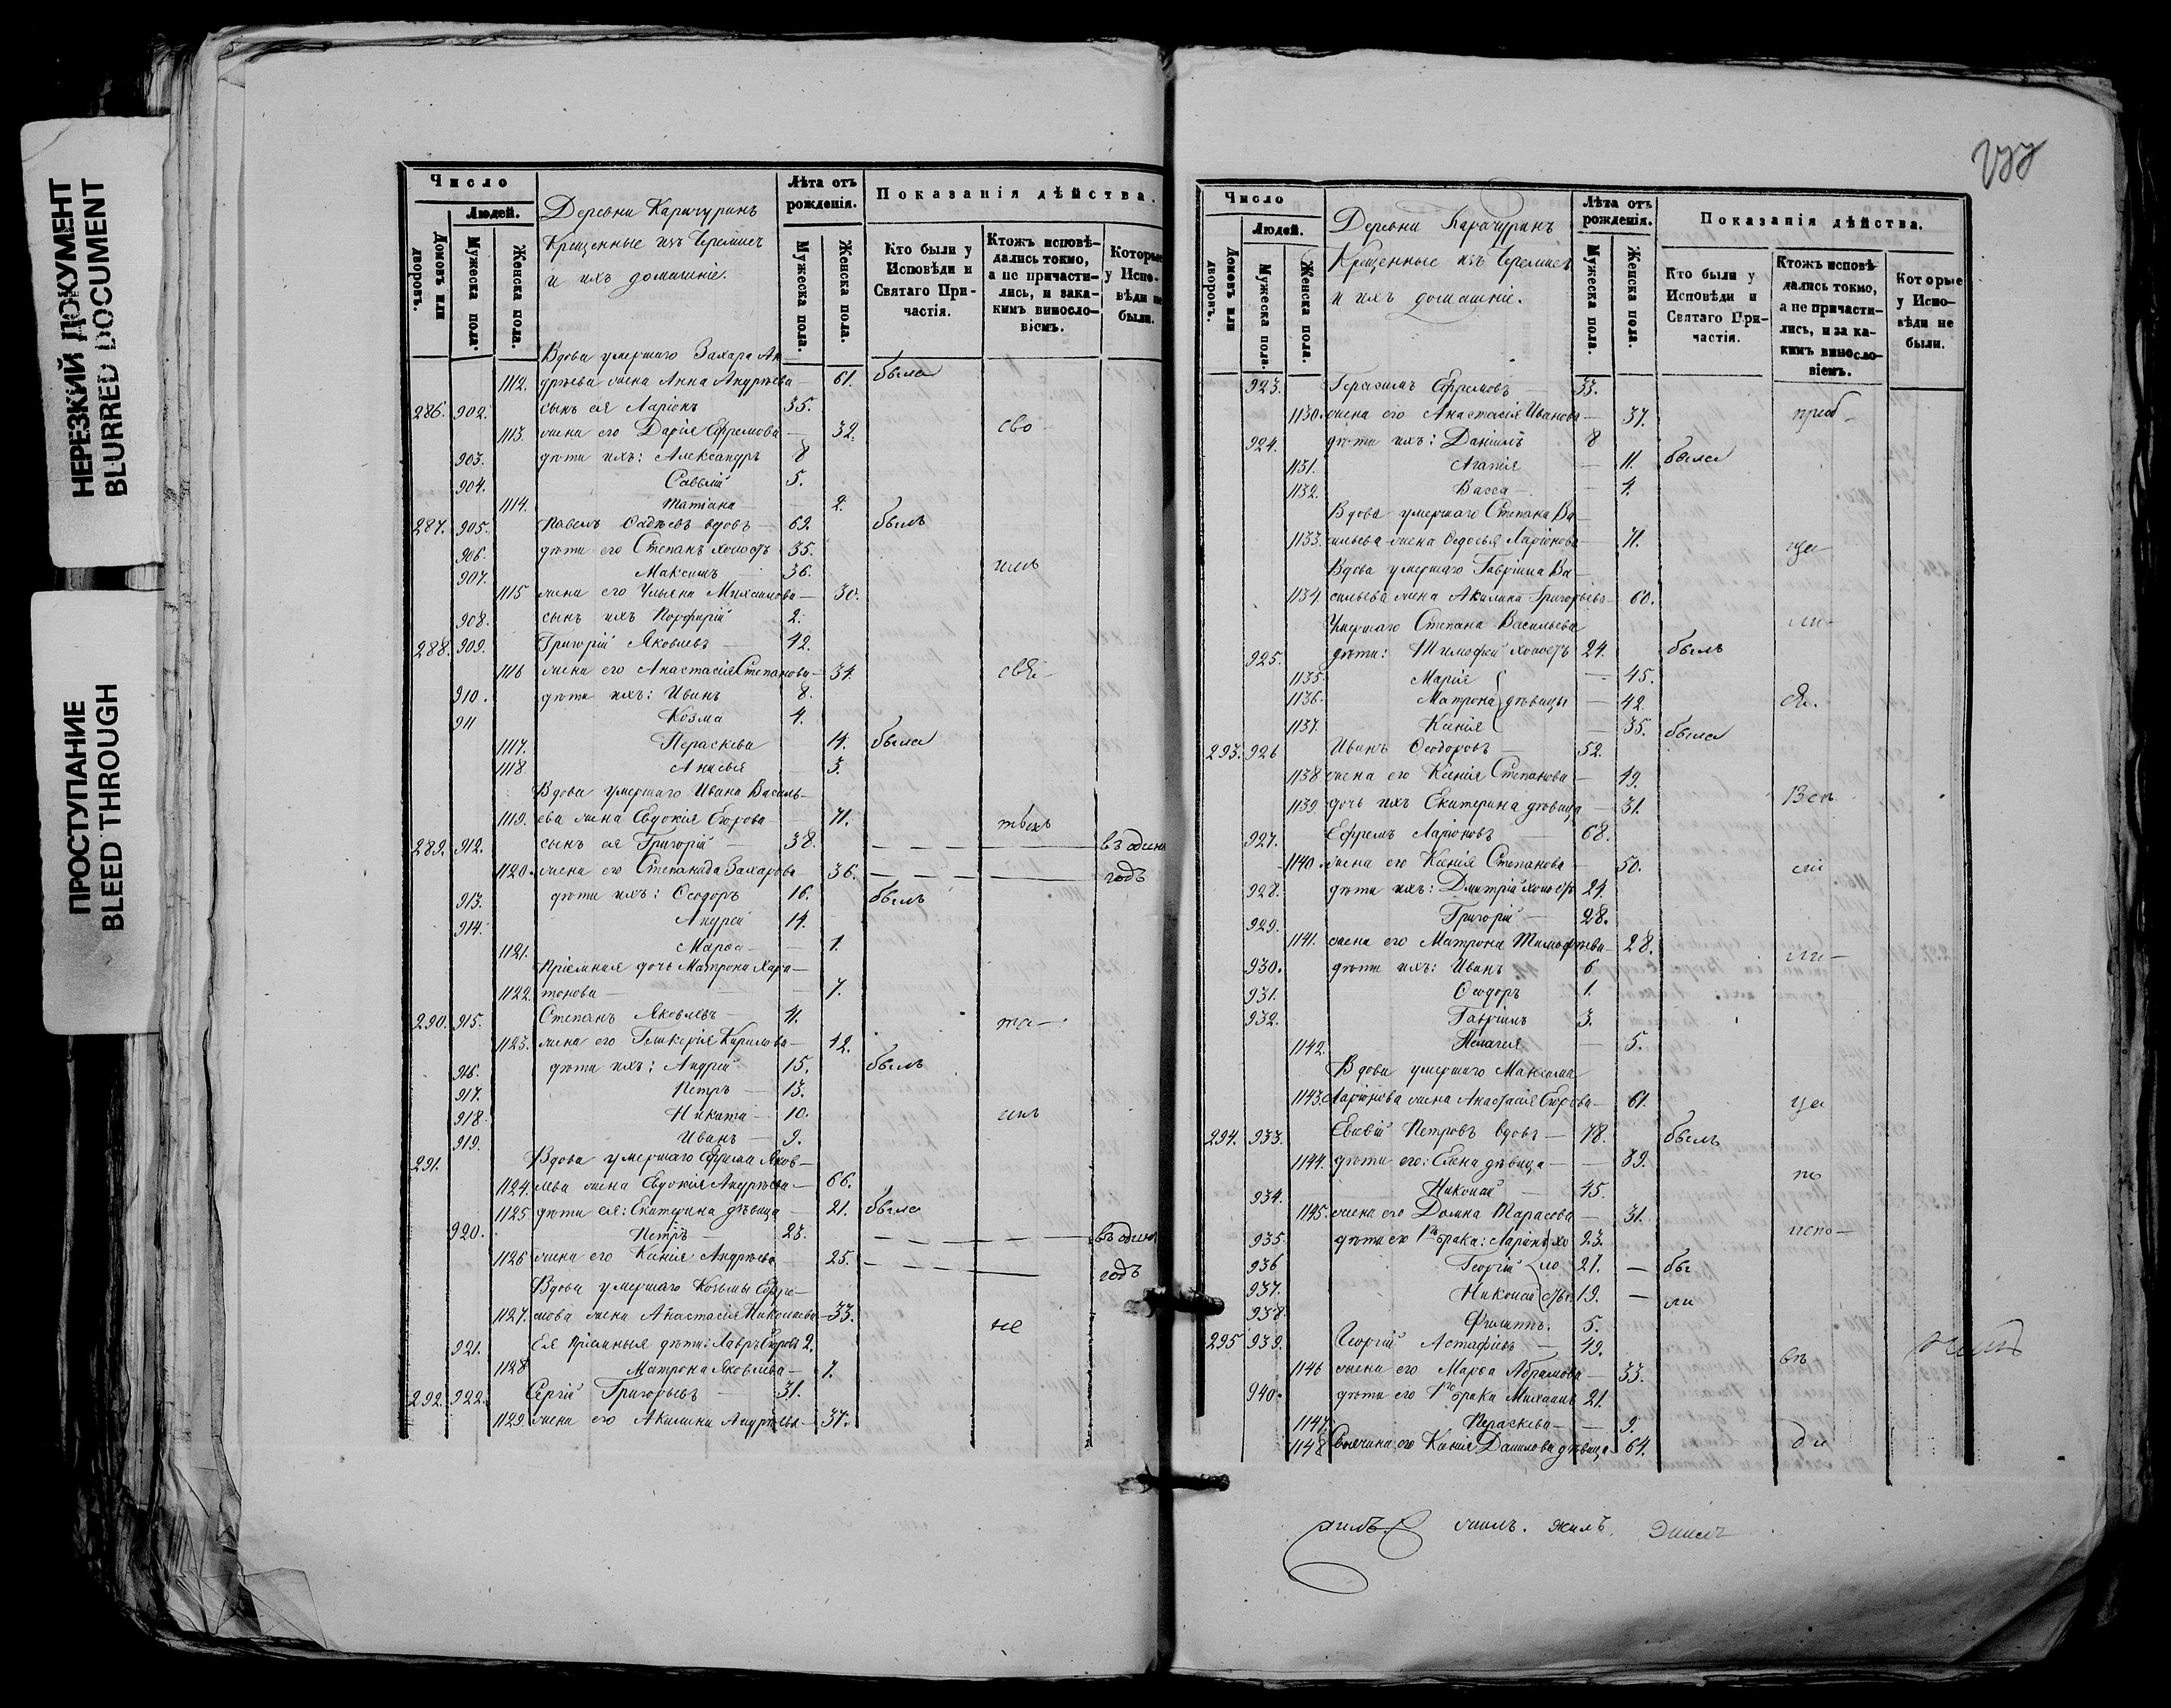 НЕРЕЗКИЙ ДОКУМЕНТ
BLURRED DOCUMENT
ПРОСТУПАНИЕ
BLEED THROUGH
Число
Людей.
Домовъ или дворовъ.
Мужеска пола.
Женска пола.
Деревни Карачуринъ
Крещенные изъ Черемисъ
и ихъ домашніе.
Лѣта отъ рожденія.
Мужеска пола.
Женска пола.
Показанія дѣйства.
Кто были у Исповѣди и Святаго Причастія.
Ктожъ исповѣдались токмо, а не причастились, и закакимъ винословіемъ.
Которые у Исповѣди не были.
Вдова умершаго Захара Ан
1112. дрѣева жена Анна Андрѣева — 61. была
286. 902. сынъ ея Ларіонъ 35.
1113. жена его Дарія Ефремова — 32. сво
903. дѣти ихъ: Александръ 8
904. Савелій 5.
1114. Татіана — 2.
287. 905. Павелъ Фадѣевъ вдовъ — 69. былъ
906. дѣти его Степанъ холостъ 35.
907. Максимъ — 36.
1115 жена его Ульяна Михаилова — 30.
908. сынъ ихъ Порфирій 2.
288. 909. Григорій Яковлевъ — 42.
1116 жена его Анастасія Степанова — 34.
910. дѣти ихъ: Иванъ 8.
911 Козма 4.
1117. Параскева 14. была
1118. Анисья — 3.
Вдова умершаго Ивана Василь—
1119. ева жена Евдокія Егорова — 71.
289. 912. сынъ ея Григорій — 38. въ один
1120. жена его Степанида Захарова — 36. годъ
913. дѣти ихъ: Ѳеодоръ 16. былъ
914. Андрей 14.
1121. Марѳа — 1.
Пріемная дочь Матрона Хари—
1122. тонова — 7.
290. 915. Степанъ Яковлевъ — 41. та—
1123. жена его Гликерія Кирилова — 42.
916. дѣти ихъ: Андрей 15. былъ
917. Петръ — 13.
918. Никита — 10.
919. Иванъ — 9.
291. Вдова умершаго Ефрема Яков—
1124. лева жена Евдокія Андрѣева — 66.
1125 дѣти ея: Екатерина дѣвица — 21. была
920. Петръ — 23. въ один
1126 жена его Ксенія Андрѣева — 25. годъ
Вдова умершаго Козьмы Ефре—
1127. мова жена Анастасія Николаева — 33. не
921. Ея пріемныя дѣти: Лавръ Егоровъ 2.
1128 Матрона Яковлева — 7.
292. 922. Сергій Григорьевъ — 31.
1129. жена его Акилина Андрѣева — 37.
Число
Людей.
Домовъ или дворовъ.
Мужеска пола.
Женска пола.
Деревни Карачуринъ
Крещенные изъ Черемисъ
и ихъ домашніе.
Лѣта отъ рожденія.
Мужеска пола.
Женска пола.
Показанія дѣйства.
Кто были у Исповѣди и Святаго Причастія.
Ктожъ исповѣдались токмо, а не причастились, и за какимъ винословіемъ.
Которые у Исповѣди не были.
923. Герасимъ Ефремовъ — 33.
1130. жена его Анастасія Иванова — 37.
924. дѣти ихъ: Даніилъ 8
1131. Агапія — 11. была
1132. Васса — 4.
Вдова умершаго Степана Ва—
1133. сильева жена Ѳедосья Ларіонова — 71.
Вдова умершаго Гавріила Ва—
1134. сильева жена Акилина Григорьева — 60.
Умершаго Степана Васильева
925. дѣти: Тимофей холостъ 24. былъ
1135. Марія — 45.
1136. Матрона дѣвицы — 42.
1137. Ксенія — 35. была
293. 926 Иванъ Ѳеодоровъ — 52.
1138 жена его Ксенія Степанова — 49.
1139. дочь ихъ Екатерина дѣвица — 31.
927. Ефремъ Ларіоновъ — 68.
1140. жена его Ксенія Степанова — 50.
928. дѣти ихъ: Дмитрій холостъ 24.
929. Григорій — 28.
1141. жена его Матрона Тимофѣева — 28.
930. дѣти ихъ: Иванъ 6
931. Ѳеодоръ 1.
932. Гавріилъ 3.
1142. Пелагея — 5.
Вдова умершаго Максима
1143. Ларіонова жена Анастасія Егорова — 61. ца
294. 933. Евсевій Петровъ вдовъ — 78. былъ
1144. дѣти его: Елена дѣвица — 39.
934. Николай — 45.
1145. жена его Домна Тарасова — 31.
935. дѣти его 1го брака: Ларіонъ хо 23. испо—
936 Георгій ло 21. — бы
937. Николай сты. 19. — ли
938. Филиппъ. 5.
295 939. Георгій Астафіевъ — 49.
1146 жена его Марѳа Абрамова — 33.
940. дѣти его 1го брака Михаилъ 21.
1147. Параскева — 9.
1148 его Ксенія Данилова дѣвица 64.